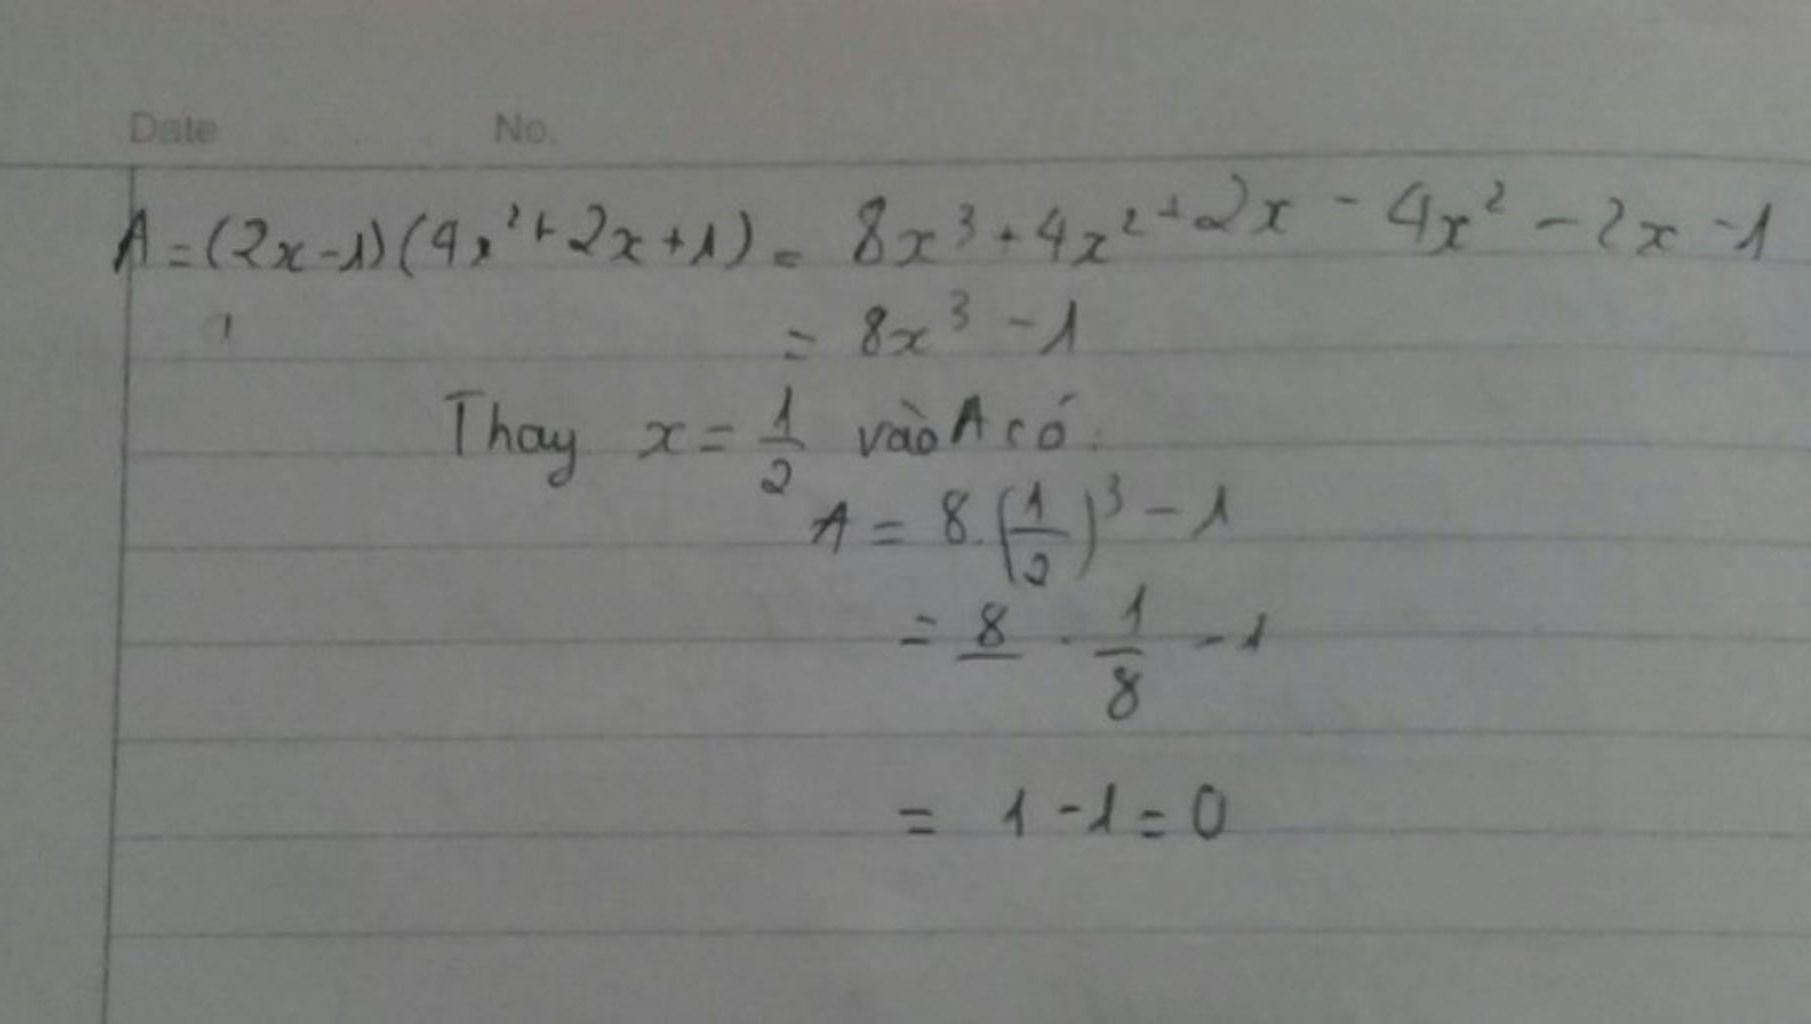 Date No.
A = (2x-1)(4x²+2x+1) = 8x³+4x²+2x - 4x² - 2x - 1
= 8x³ - 1
Thay x = 1/2 vào A có:
A = 8.(1/2)³ - 1
= 8 . 1/8 - 1
= 1 - 1 = 0